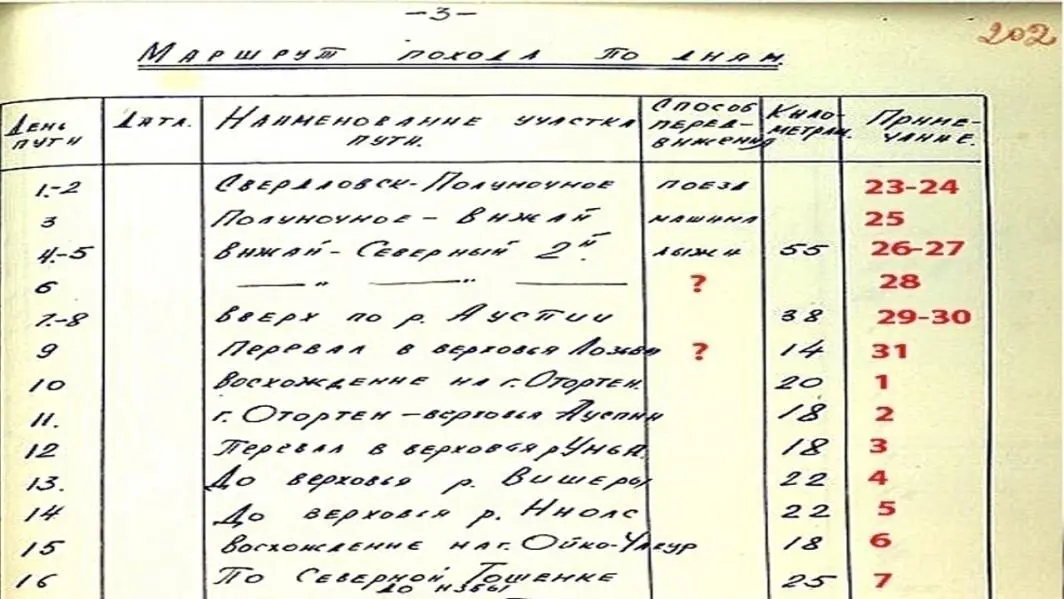 -3-
202
Маршрут похода по дням.
День пути Дата. Наименование участка пути. Способ передвижения Километраж. Примечание.
1.-2 Свердловск-Полуночное поезд 23-24
3 Полуночное - Вижай машина 25
4.-5 Вижай-Северный 2й. лыжи 55 26-27
6 —— " —— " —— ? 28
7.-8 вверх по р. Аустии 38 29-30
9 Перевал в верховья Лозьвы ? 14 31
10 восхождение на г. Отортен. 20 1
11. г. Отортен - верховья Ауспии 18 2
12 Перевал в верховья р Унья. 18 3
13. До верховья р. Вишеры 22 4
14 До верховья р. Ниолс 22 5
15 восхождение на г. Ойко-Чакур 18 6
16 По Северной Тошемке до избы 25 7